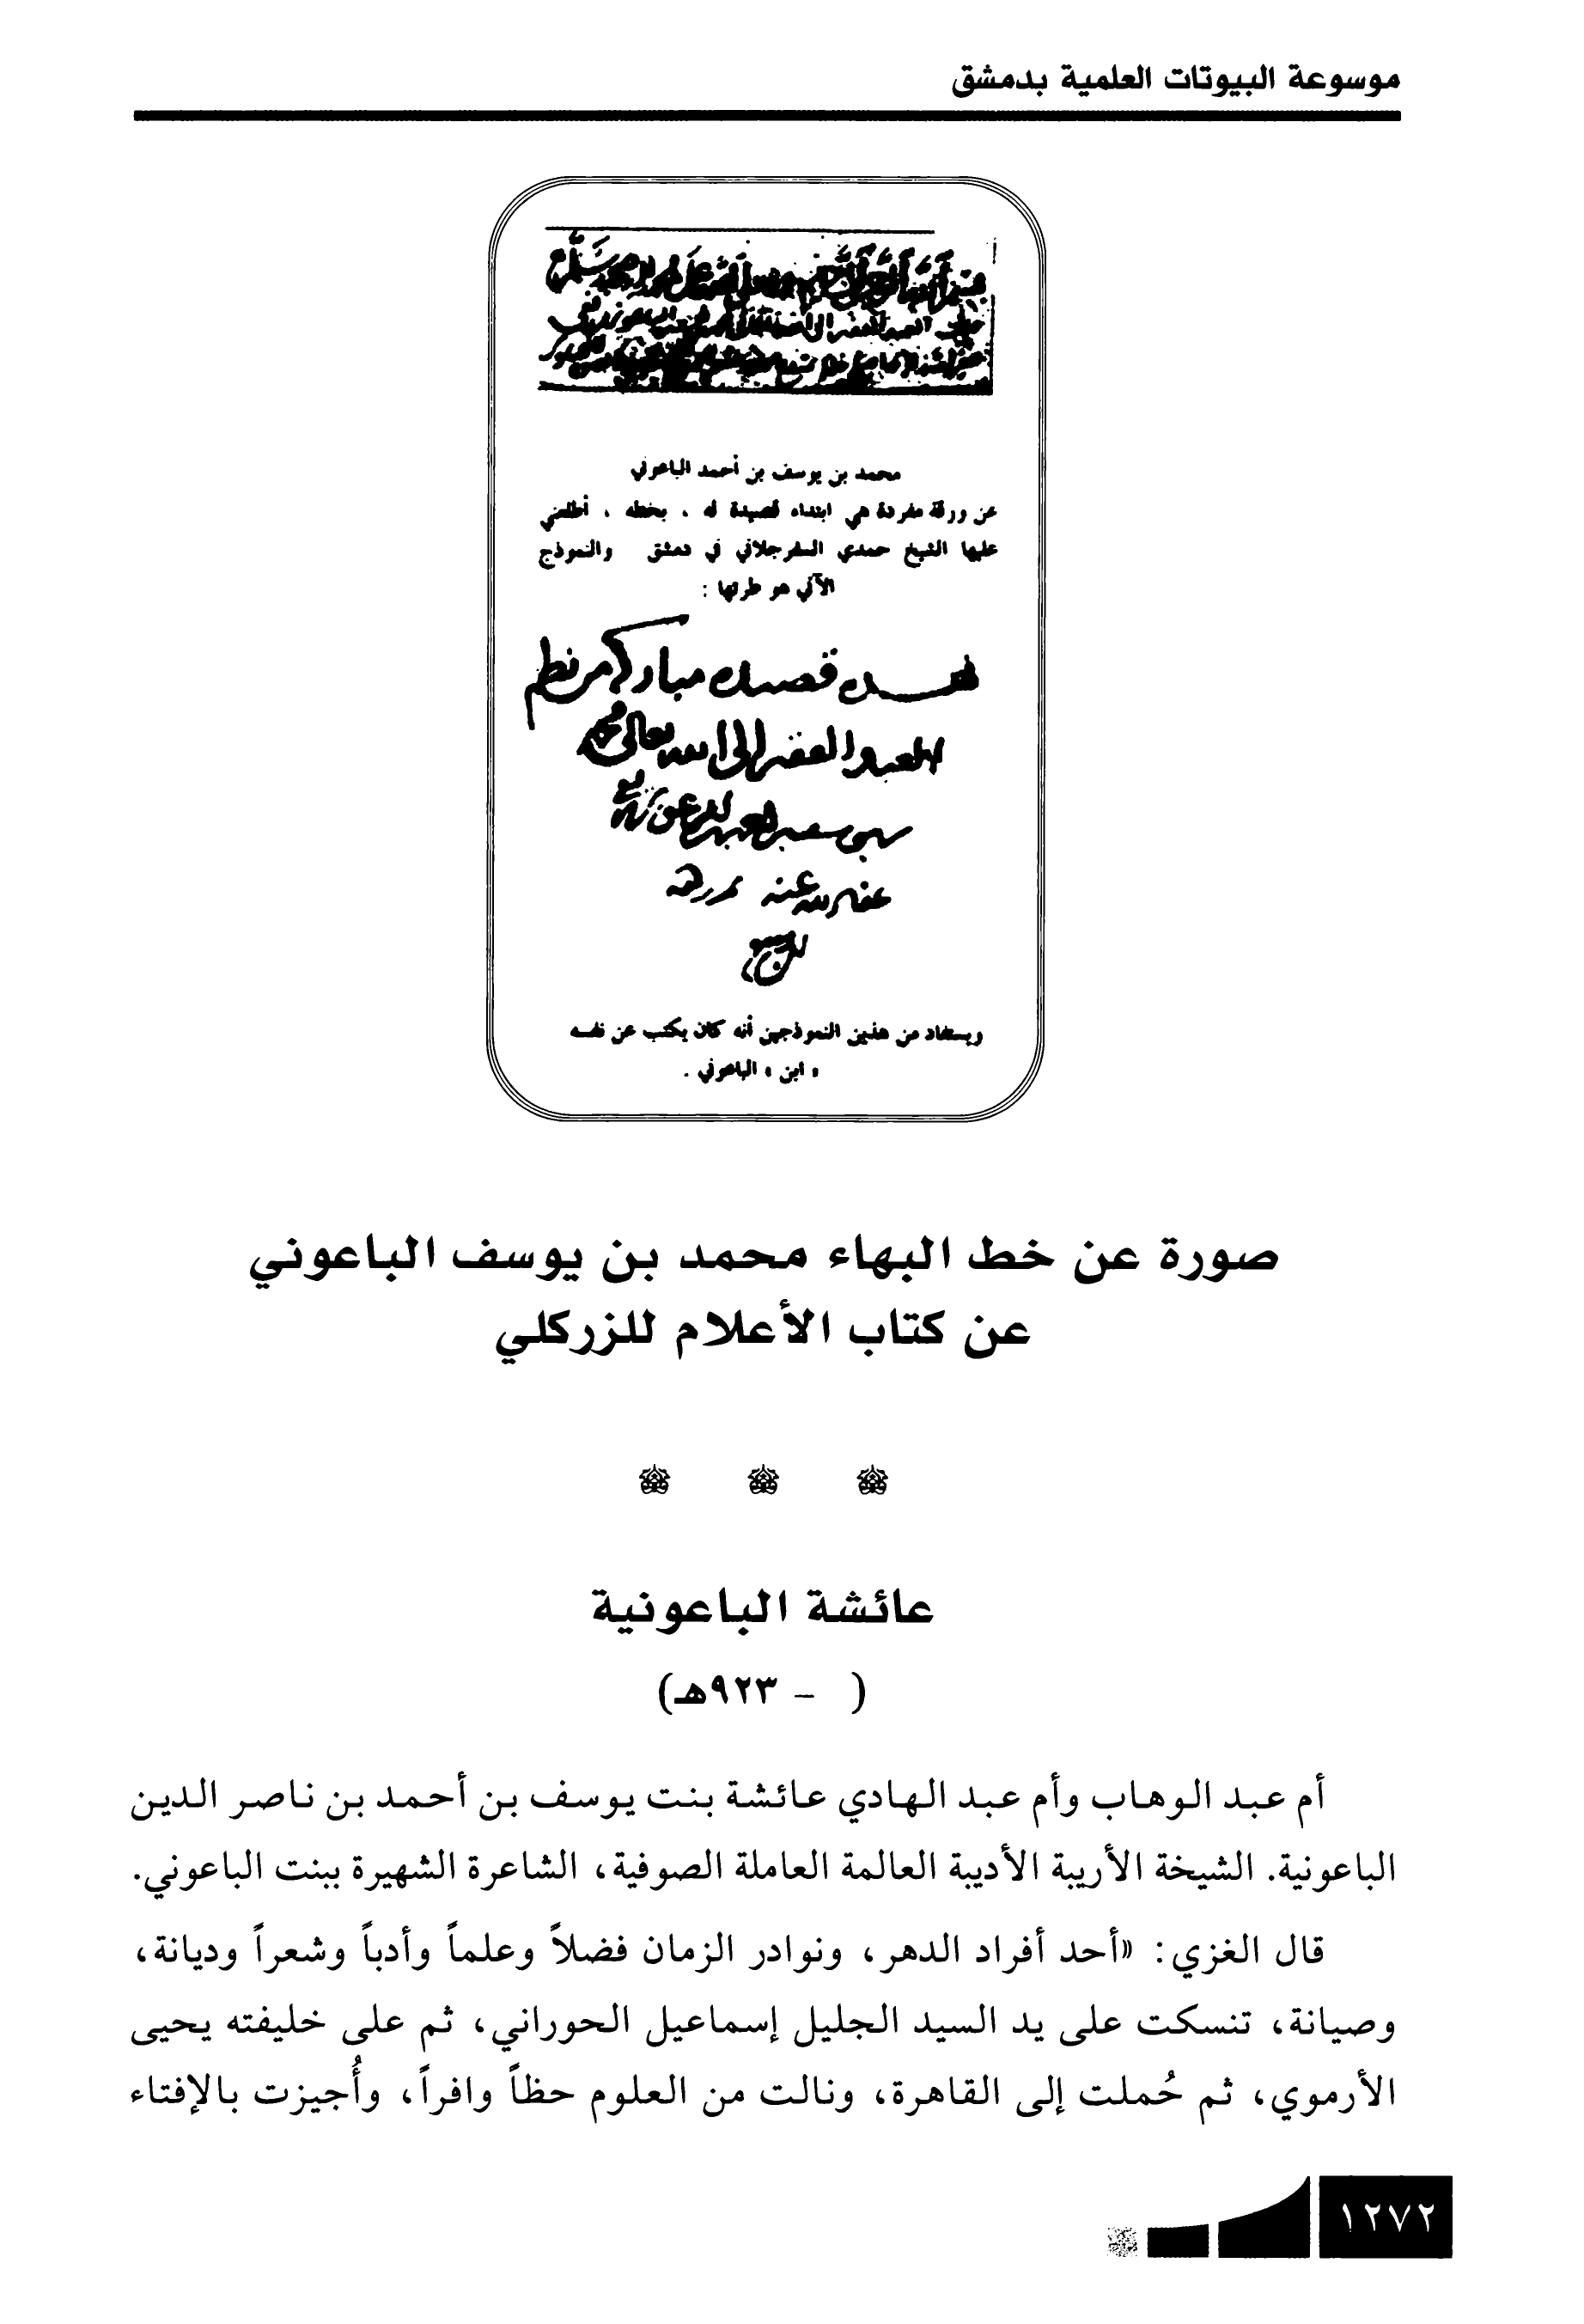 موسوعة البيوتات العلمية بدمشق
محمد بن يوسف بن أحمد الباعوني
عن ورقة مفردة هي ابتداء قصيدة له ، بخطه ، أطلعني
عليها الشيخ حمدي السفرجلاني في دمشق والنموذج
الآتي هو طرتها :
هذه قصيدة مباركة من نظم
العبد الفقير إلى الله تعالى محمد
عفا الله عنه
ويستفاد من هذين النموذجين أنه كان يكتب عن نفسه
« ابن » الباعوني .
صورة عن خط البهاء محمد بن يوسف الباعوني
عن كتاب الأعلام للزركلي
عائشة الباعونية
( - ٩٢٣هـ)
أم عبد الوهاب وأم عبد الهادي عائشة بنت يوسف بن أحمد بن ناصر الدين
الباعونية. الشيخة الأريبة الأديبة العالمة العاملة الصوفية، الشاعرة الشهيرة ببنت الباعوني.
قال الغزي: «أحد أفراد الدهر، ونوادر الزمان فضلاً وعلماً وأدباً وشعراً وديانة،
وصيانة، تنسكت على يد السيد الجليل إسماعيل الحوراني، ثم على خليفته يحيى
الأرموي، ثم حُملت إلى القاهرة، ونالت من العلوم حظاً وافراً، وأُجيزت بالإفتاء
١٢٧٢